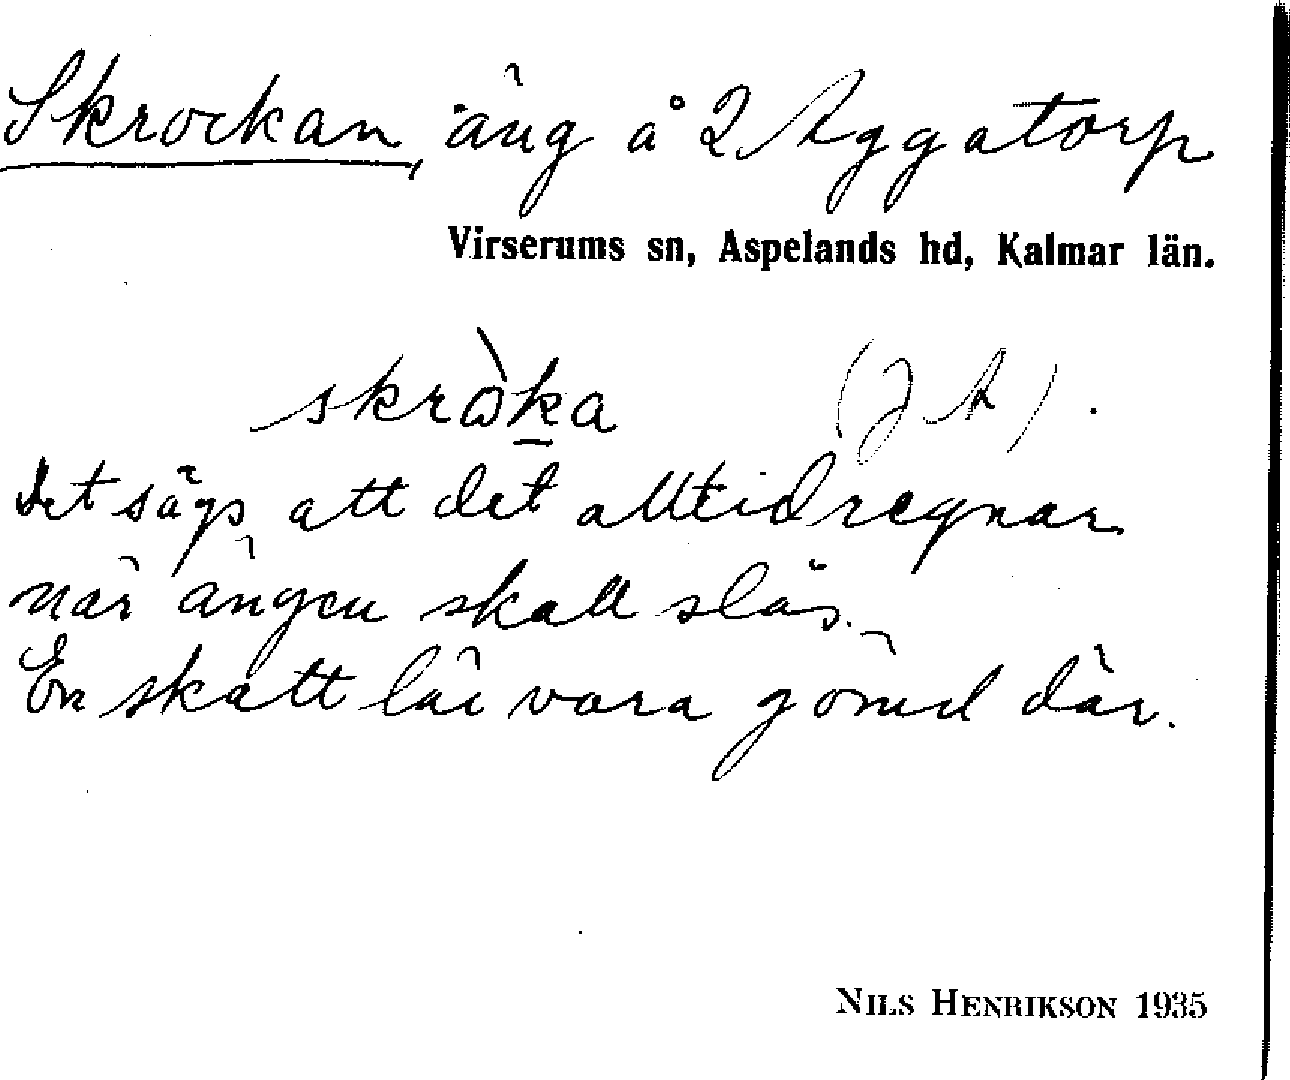 Skrockan, äng å 2 Aggatorp
Virserums sn, Aspelands hd, Kalmar län.
skrò̱ka (J A).
Det sägs, att det alltid regnar
när ängen skall slås.
En skatt lär vara gömd där.
NILS HENRIKSON 1935